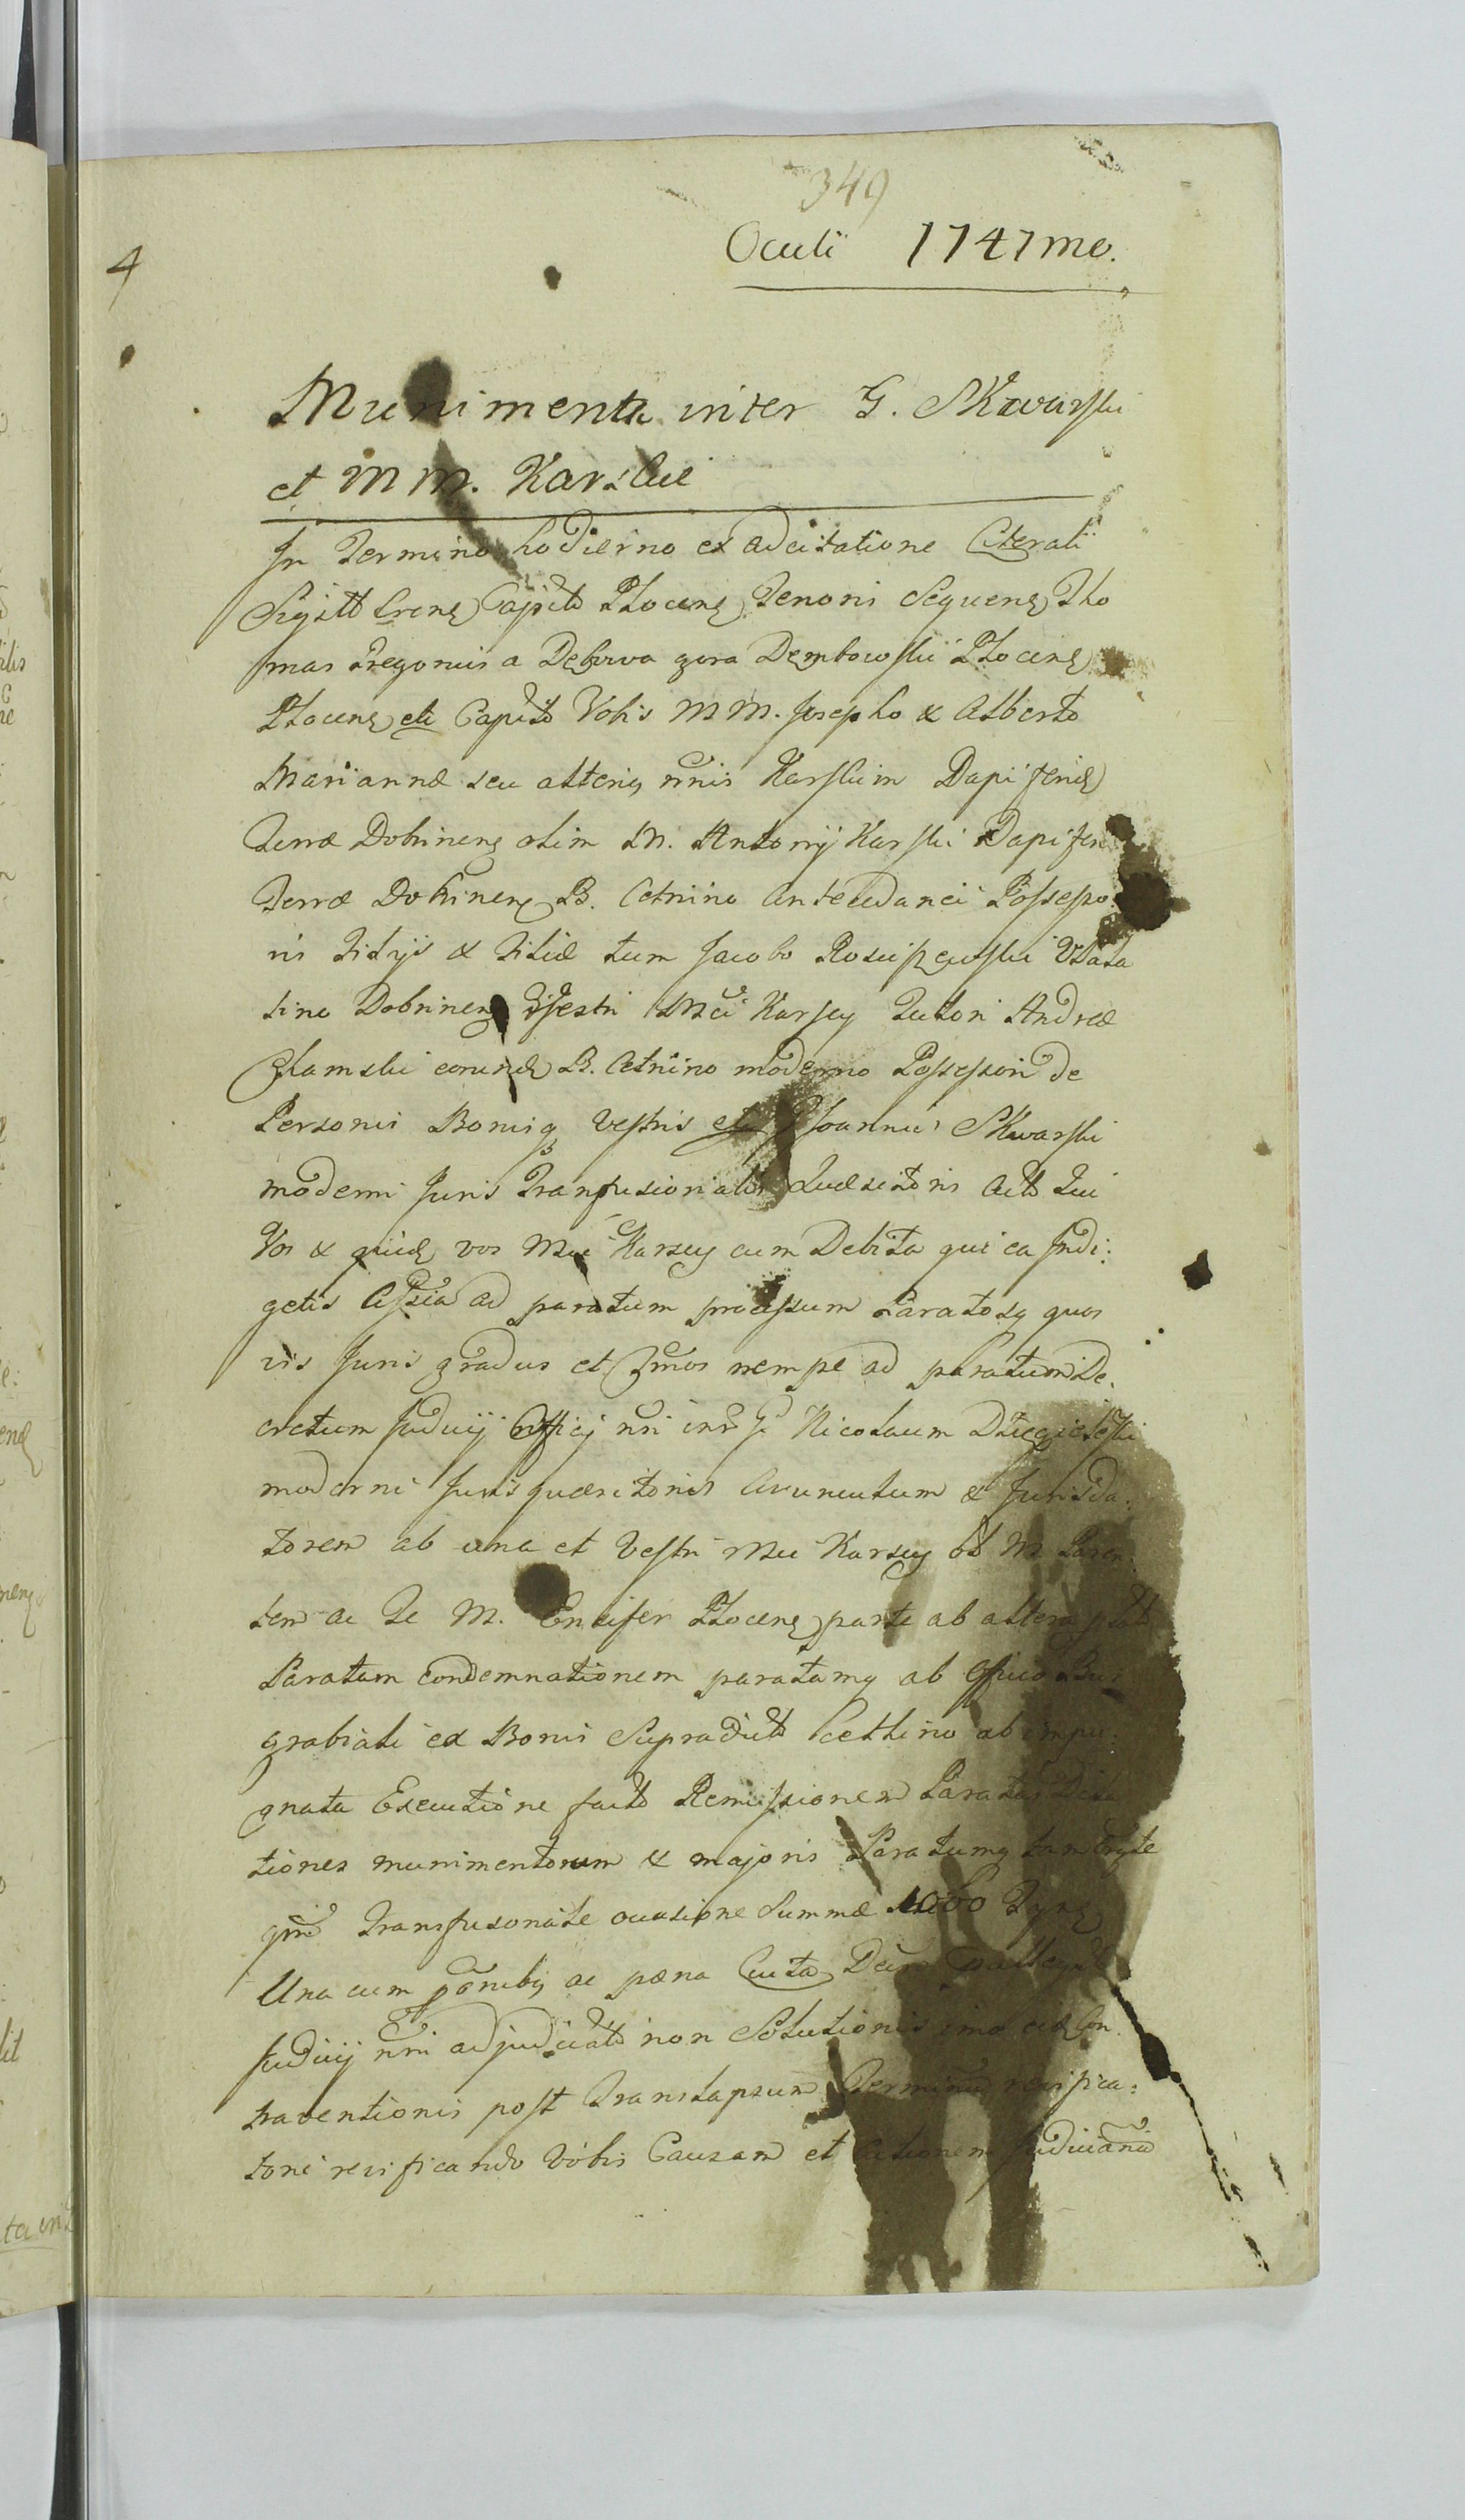 349
Oculi 1747mo.
4
Munimenta inter G. Skwarski
et MM. Karskie
In Termino hodierno ex adcitatione Literali
Sigill Crens Capitt Plocens Tenoris Sequens Tho
mas Gregorius a Dębowa gora Dembowski Plocens
Plocens etc Capitt Vobis MM. Josepho & Alberto
Mariannæ seu alterius nnis Karskim Dapiferid
Terræ Dobrinens olim M. Antonij Karski Dapiferi
Terræ Dobrinens B. Cetnino Antecedanei Possesso
ris filijs & filiæ tum Jacobo Rosciszewski
tino Dobrinens Vestri Mci Karscy Tutori Andreæ
Glamski eorund B. Cetnino moderno Possessori de
Personis Bonisq vestris etc G Joannis Skwarski
moderni Juris Transfusionalis Quæsitoris Actt Qui
Vos & quid vos Mci Karscy cum Debita qui ea Indi:
getis Assia ad paratum processum Paratosq quos
vis Juris gradus et Zmos nempe ad paratum De
cretum Judicij Officij nri inr G Nicolaum Dzięgielewski
moderni Juris quæsitoris Avunculum & Jurisda:
torem ab una et Vestri Mci Karscy ol M. Paren
tem ac Te M. Ensifer Plocens parte ab altera
Paratam Condemnationem paratamq ab Officio Bur
grabiali ex Bonis Supradict Cetlino ab impu:
gnata Executione fact Remissionem Paratas Dila
tiones munimentorum & majoris Paratumq
Transfusonale occasione Summæ 1000
Una cum pœnibq ac pœna
Judicij nri adjudicatt non Solutionis imo con
traventionis post Translapsum Terminum reisfica:
torie reisficando Vobis Causam et Actionem Judiciariam